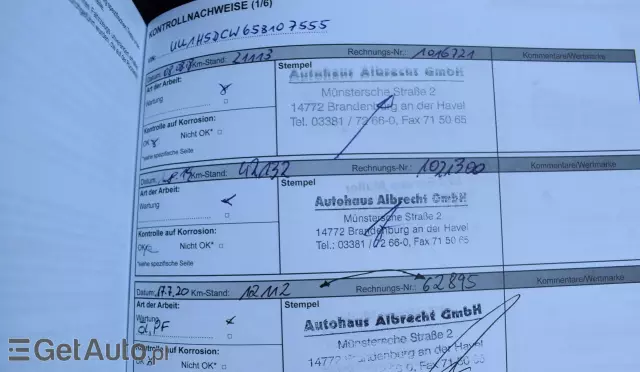 KONTROLLNACHWEISE (1/6)
VIN:
Datum: Km-Stand: 21113 Rechnungs-Nr.: 1016721 Kommentare/Wertmarke
Art der Arbeit:
Wartung
Kontrolle auf Korrosion:
OK Nicht OK*
*siehe spezifische Seite
Stempel
Autohaus Albrecht GmbH
Münstersche Straße 2
14772 Brandenburg an der Havel
Tel. 03381 / 72 66-0, Fax 71 50 65
Datum: Km-Stand: 42132 Rechnungs-Nr.: 1021300 Kommentare/Wertmarke
Art der Arbeit:
Wartung
Kontrolle auf Korrosion:
OK Nicht OK*
*siehe spezifische Seite
Stempel
Autohaus Albrecht GmbH
Münstersche Straße 2
14772 Brandenburg an der Havel
Tel.: 03381 / 72 66-0, Fax 71 50 65
Datum: 17.7.20 Km-Stand: Rechnungs-Nr.: 62895 Kommentare/Wertmarke
Art der Arbeit:
Wartung
Stempel
Autohaus Albrecht GmbH
Münstersche Straße 2
14772 Brandenburg an der Havel
GetAuto.pl